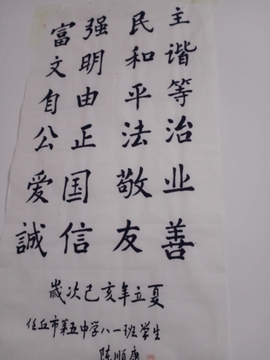 富强民主
文明和谐
自由平等
公正法治
爱国敬业
誠信友善
歲次己亥年立夏
任丘市第五中学八一班学生
陈顺